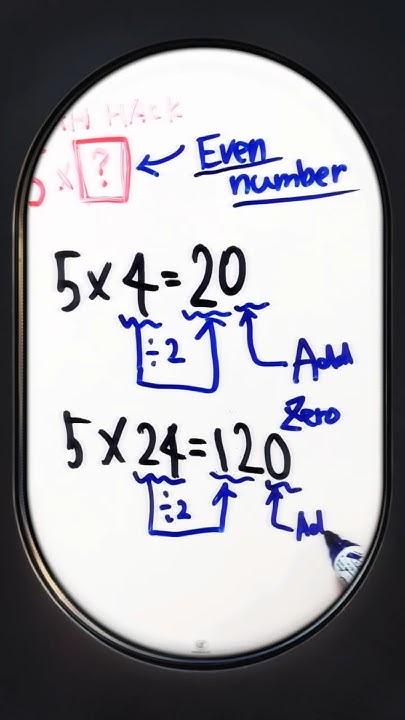 HACK
5 x ?
Even
number
5 x 4 = 20
÷2
Add
Zero
5 x 24 = 120
÷2
Ad